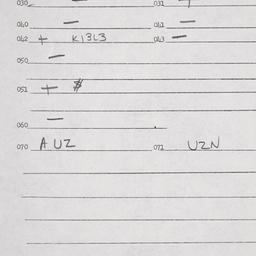 030 — 031 +
040 — 041 —
042 + K13L3 043 —
050 —
051 + $
060 —
070 A UZ 071 UZN